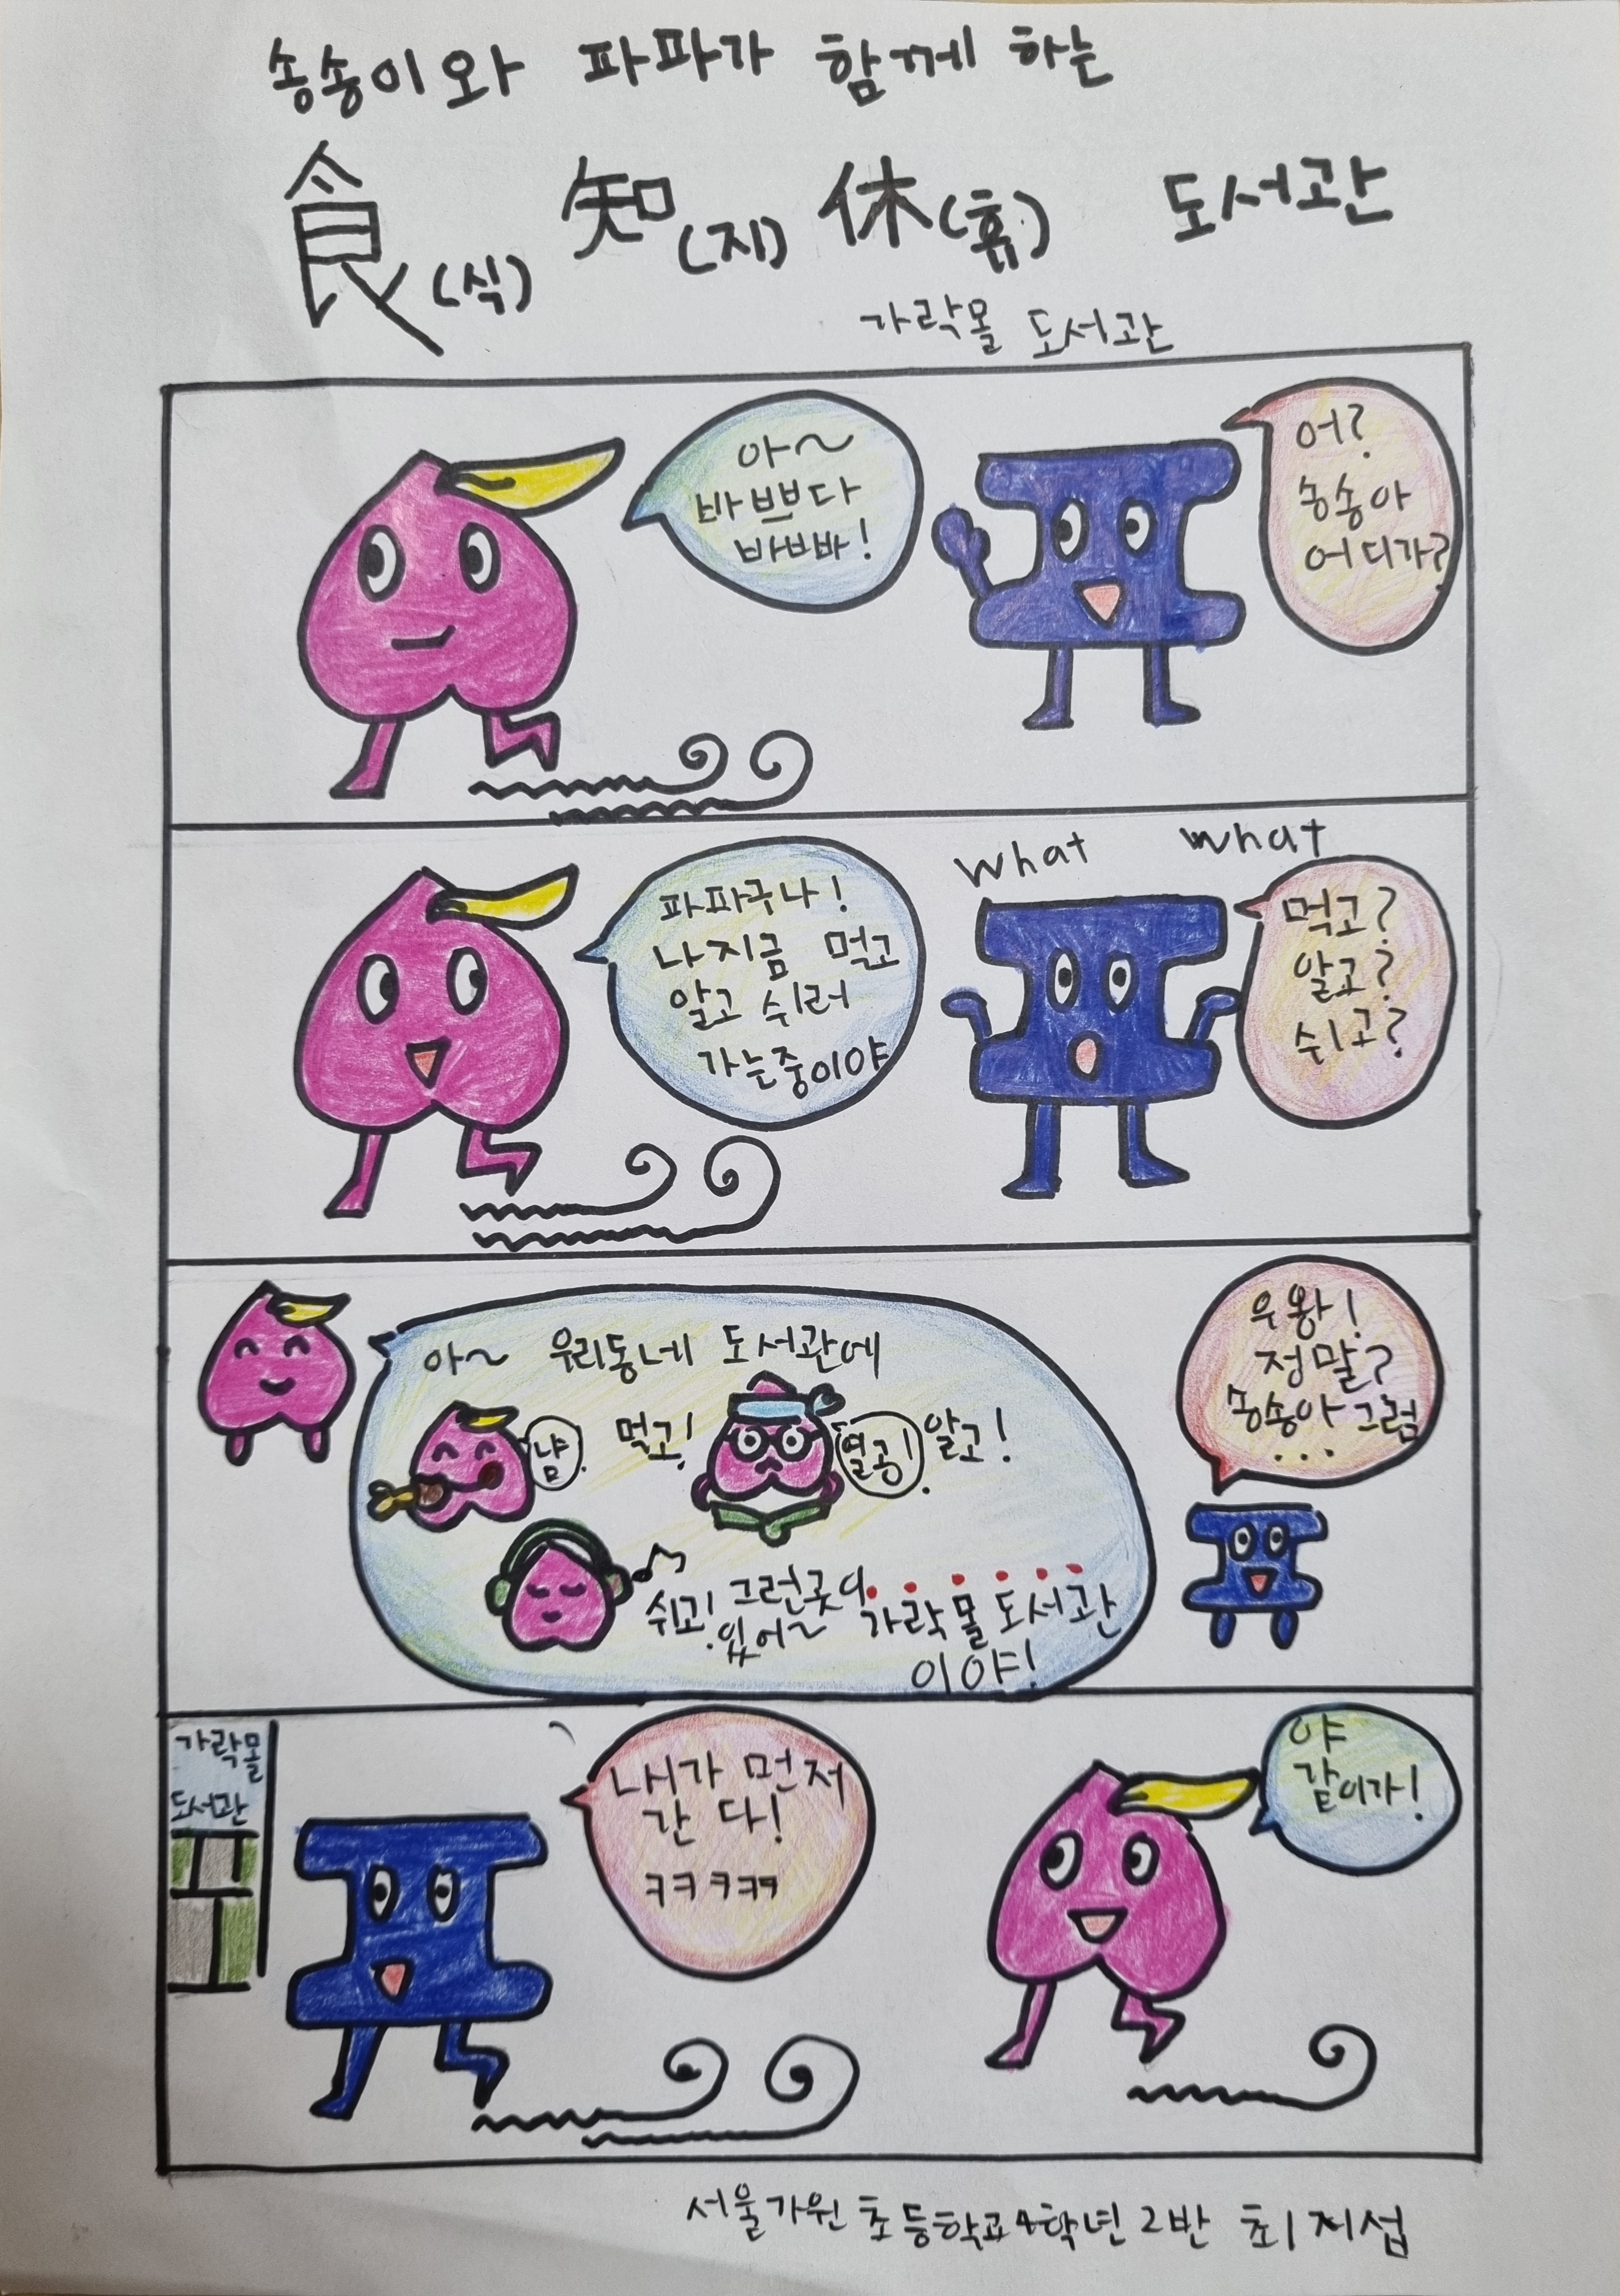 송송이와 파파가 함께 하는
食(식) 知(지) 休(휴) 도서관
가락몰 도서관
아~
바쁘다
바빠!
어?
송송아
어디가?
파파구나!
나 지금 먹고
알고 쉬러
가는중이야
What What
먹고?
알고?
쉬고?
아~ 우리동네 도서관에
냠! 먹고!
열공! 알고!
쉬고! 그런곳이
있어~ 가락몰 도서관
이야!
우왕!
정말?
송송아 그럼
...
가락몰
도서관
내가 먼저
간다!
ㅋㅋㅋㅋㅋ
야
같이가!
서울가원초등학교4학년 2반 최지섭